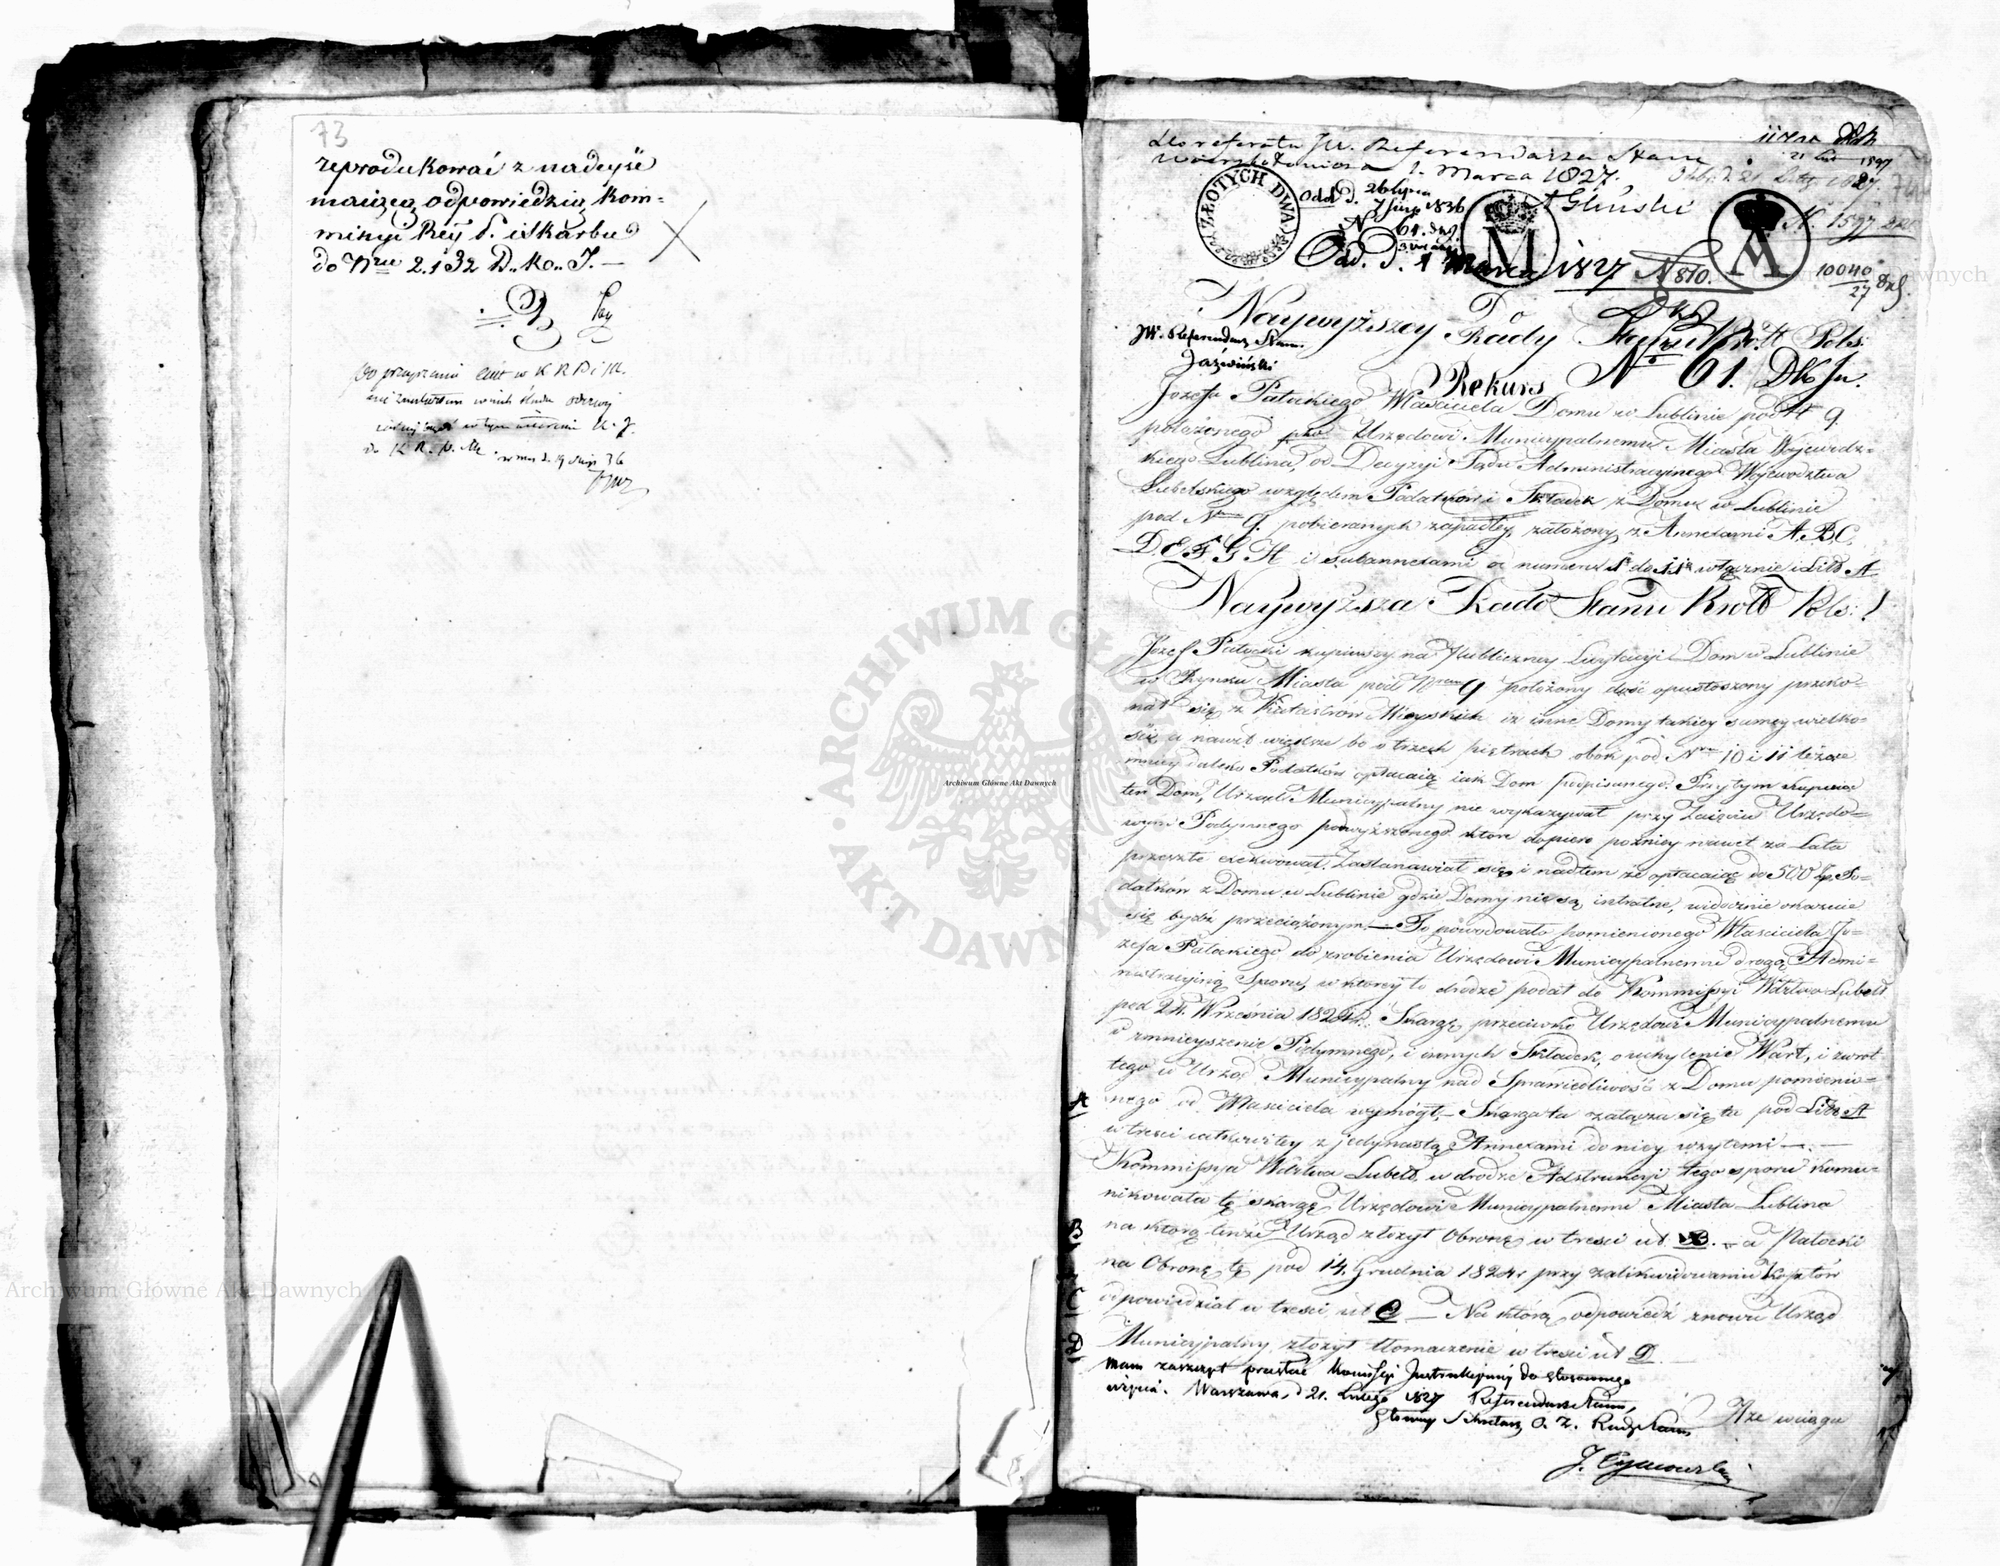 73
reprodukować z nadeyść
maiącą odpowiedzią Kom-
missyi Rzą. P. i Skarbu
do Nru 2.132 D. Ko. J. —
Po przeyrzeniu akt w K R P i S.
do K R. P.
Do referatu JW. Referendarza Stanu
1. Marca 1827.
21 Lut 1827
ZŁOTYCH DWA
Odd d. 26 lipca
1836
N 61.
M
A
Gliński
N. 1597
Odd. d. 1 Marca 1827 N 810.
10040
27
Do
Naywyższey Rady Stanu Król. Pols:
JW. Referendarz Stanu
Jaźwiński
No 61. DKo Ju.
Rekurs
Józefa Patockiego Właściciela Domu w Lublinie pod N 9
położonego prko Urzędowi Municypalnemu Miasta Wojewódz-
kiego Lublina, od Decyzyi Sądu Administracyinego Województwa
Lubelskiego względem Podatków i Składek z Domu w Lublinie
pod Nrem 9. pobieranych zapadłey, założony z Annexami A. B. C.
D. E. F. G. H. i subannexami od numeru 1 do 11 włącznie i Litt A
Naywyższa Rado Stanu Król Pols: !
Józef Patocki kupiwszy na Publiczney Licytacyi Dom w Lublinie
w Rynku Miasta pod Nrem 9 położony dość opustoszony przeko-
nał się z Katastrów Mieyskich iż inne Domy takiey samey wielko-
ści a nawet większe bo o trzech piętrach obok pod Nrem 10 i 11 leżące
mniey daleko Podatków opłacaią iak Dom podpisanego. Przytym kupuiąc
ten Dom, Urząd Municypalny nie wykazywał przy Zaięciu Urzędo-
wym Podymnego podwyższonego które dopiero poźniey nawet za Lata
przeszłe exekwował. Zastanawiał się i nad tem że opłacaiąc do 500 Zp. Po-
datków z Domu w Lublinie gdzie Domy nie są intratne, widocznie okazuie
się bydź przeciążonym. — To powodowało pomienionego Właściciela Jó-
zefa Patockiego do zrobienia Urzędowi Municypalnemu drogą Admi-
nistracyiną Sporu, w ktorey to drodze podał do Kommissyi Wdztwa Lubels
pod 24. Września 1824r. Skargę przeciwko Urzędowi Municypalnemu
o zmnieyszenie Podymnego, i innych Składek, o uchylenie Wart, i zwrot
tego co Urząd Municypalny nad Sprawiedliwość z Domu pomienio-
A
nego od Właściciela wymógł. — Skarga ta załącza się tu pod Litt A
w treści całkowitey z jedynastą Annexami do niey wszytemi —
Kommissya Wdztwa Lubels. w drodze Adstrukcyi tego sporu komu-
nikowała tę skargę Urzędowi Municypalnemu Miasta Lublina
B
na którą tenże Urząd złożył Obronę w treści ut B. — a Patocki
na Obronę tę pod 14. Grudnia 1824r przy zalikwidowaniu Kosztów
C
odpowiedział w treści ut C — Na którą odpowiedź znowu Urząd
D
Municypalny złożył tłomaczenie w treści ut D.
mam zaszczyt przesłać Komissyi Instrukcyiney do stosownego
użycia. Warszawa, d 21. Lutego 1827 Referendarz Stanu,
Główny Sekretarz O. Z. Rady Stanu
A że w ciągu
Archiwum Główne Akt Dawnych
ARCHIWUM GŁÓWNE AKT DAWNYCH
Archiwum Główne Akt Dawnych